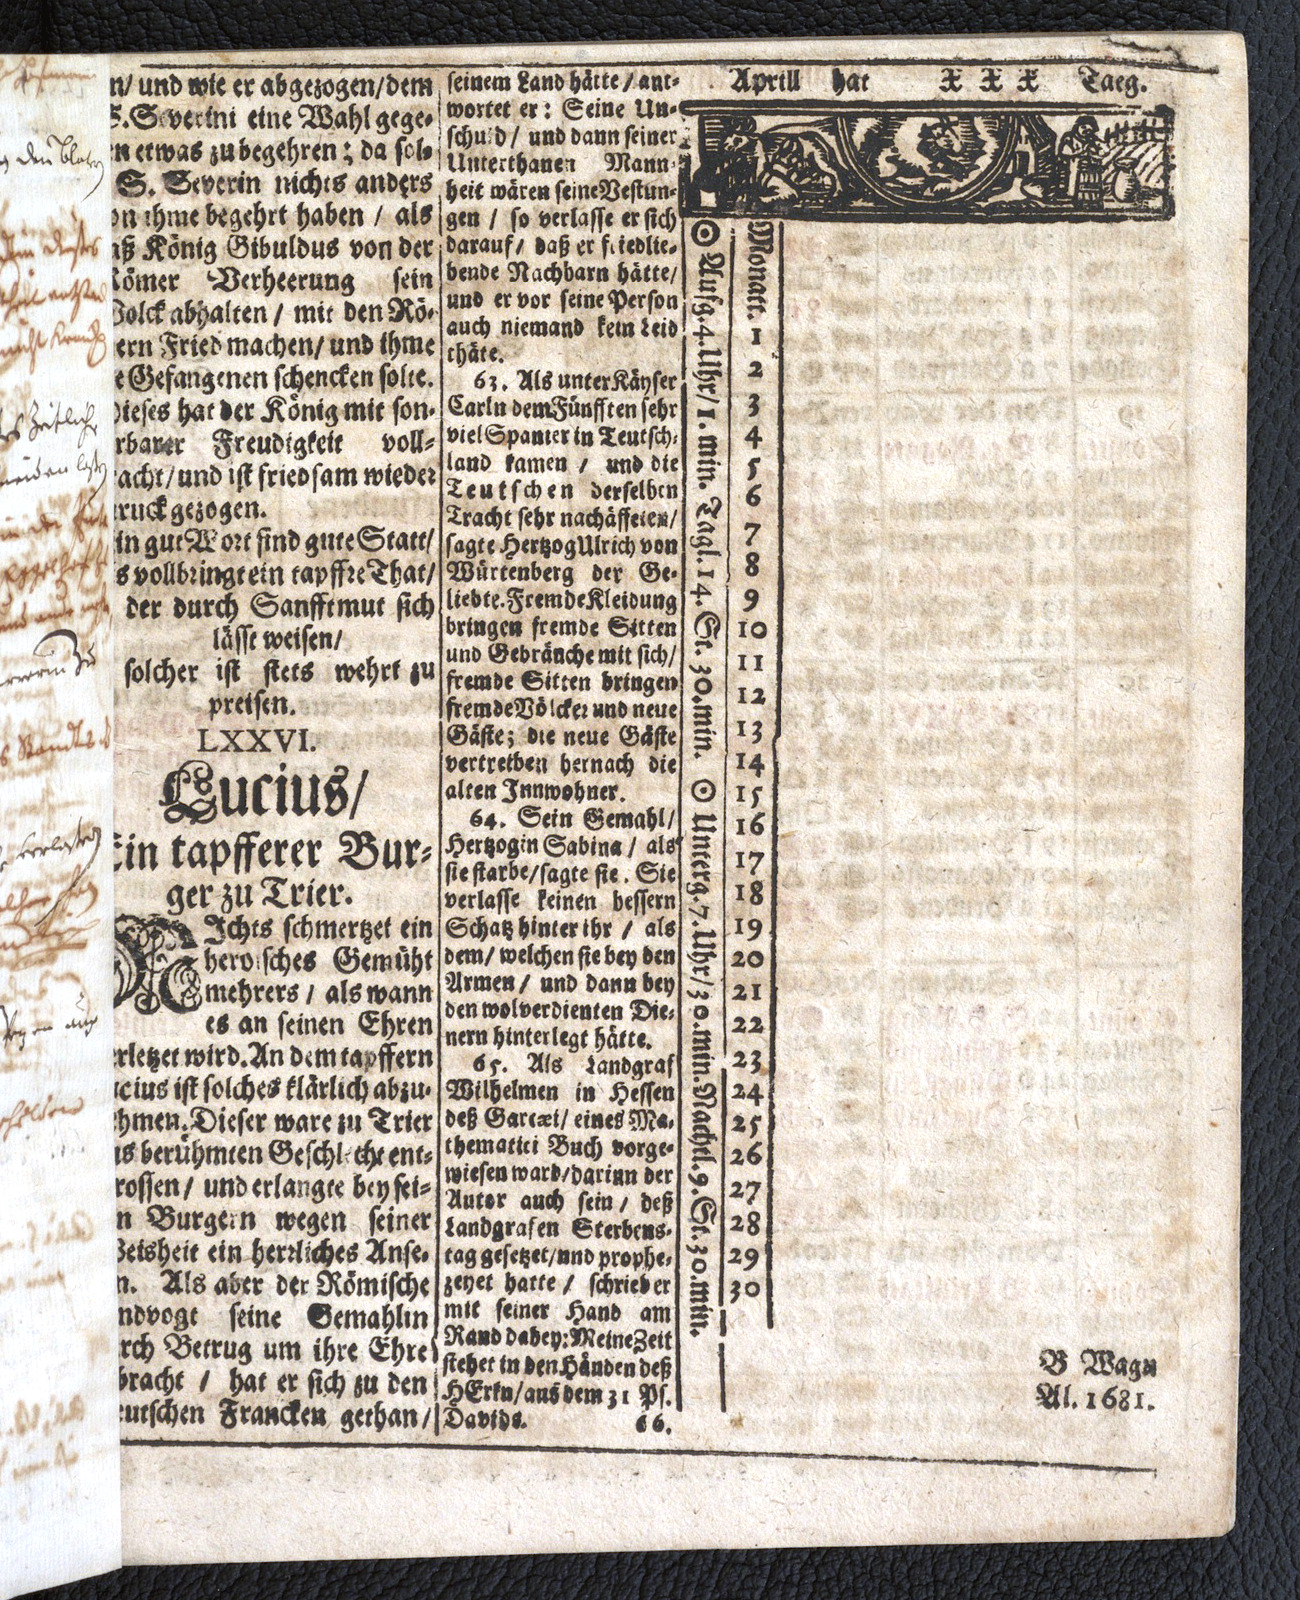 n/ und wie er abgezogen/dem
S. Severini eine Wahl gege-
n etwas zu begehren; da sol-
S. Severin nichts anders
on ihme begehrt haben / als
aß König Gibuldus von der
Römer Verheerung sein
Volck abhalten / mit den Rö-
ern Fried machen/ und ihme
e Gefangenen schencken solte.
Dieses hat der König mit son-
rbarer Freudigkeit voll-
acht/ und ist friedsam wieder
ruck gezogen.
in gut Wort find gute Statt/
s vollbringt ein tapffre That/
der durch Sanfftmut sich
lässe weisen/
solcher ist stets wehrt zu
preisen.
LXXVI.
Lucius/
Ein tapfferer Bur-
ger zu Trier.
NIchts schmertzet ein
heroisches Gemüht
mehrers / als wann
es an seinen Ehren
erletzet wird. An dem tapffern
ucius ist solches klärlich abzu-
hmen. Dieser ware zu Trier
us berühmten Geschlecht ent-
rossen/ und erlangte bey sei-
n Burgern wegen seiner
Weisheit ein herrliches Anse-
n. Als aber der Römische
ndvogt seine Gemahlin
rch Betrug um ihre Ehre
bracht / hat er sich zu den
eutschen Francken gethan/
seinem Land hätte / ant-
wortet er: Seine Un-
schuld/ und dann seiner
Unterthanen Mann-
heit wären seine Vestun-
gen / so verlasse er sich
darauf/ daß er friedlie-
bende Nachbarn hätte/
und er vor seine Person
auch niemand kein Leid
thäte.
63. Als unter Käyser
Carln dem Fünfften sehr
viel Spanier in Teutsch-
land kamen / und die
Teutschen derselben
Tracht sehr nachäffeten/
sagte Hertzog Ulrich von
Würtenberg der Ge-
liebte. Fremde Kleidung
bringen fremde Sitten
und Gebräuche mit sich/
fremde Sitten bringen
fremde Völcker und neue
Gäste; die neue Gäste
vertreiben hernach die
alten Innwohner.
64. Sein Gemahl/
Hertzogin Sabina / als
sie starbe/ sagte sie. Sie
verlasse keinen bessern
Schatz hinter ihr / als
dem/ welchen sie bey den
Armen / und dann bey
den wolverdienten Die-
nern hinterlegt hätte.
65. Als Landgraf
Wilhelmen in Hessen
deß Garcæi/ eines Ma-
thematici Buch vorge-
wiesen ward/ darinn der
Autor auch sein / deß
Landgrafen Sterbens-
tag gesetzet/ und prophe-
zeyet hatte / schrieb er
mit seiner Hand am
Rand dabey: Meine Zeit
stehet in den Händen deß
HErrn/ aus dem 31 Ps.
Davids.
66.
Aprill hat XXX Taeg.
☉ Aufg. 4. Uhr/ 1. min. Tagl. 14. St. 30. min. ☉ Unterg. 7. Uhr/ 30. min. Nachtl. 9. St. 30. min.
Monatt.
1
2
3
4
5
6
7
8
9
10
11
12
13
14
15
16
17
18
19
20
21
22
23
24
25
26
27
28
29
30
B Wagn
Al. 1681.